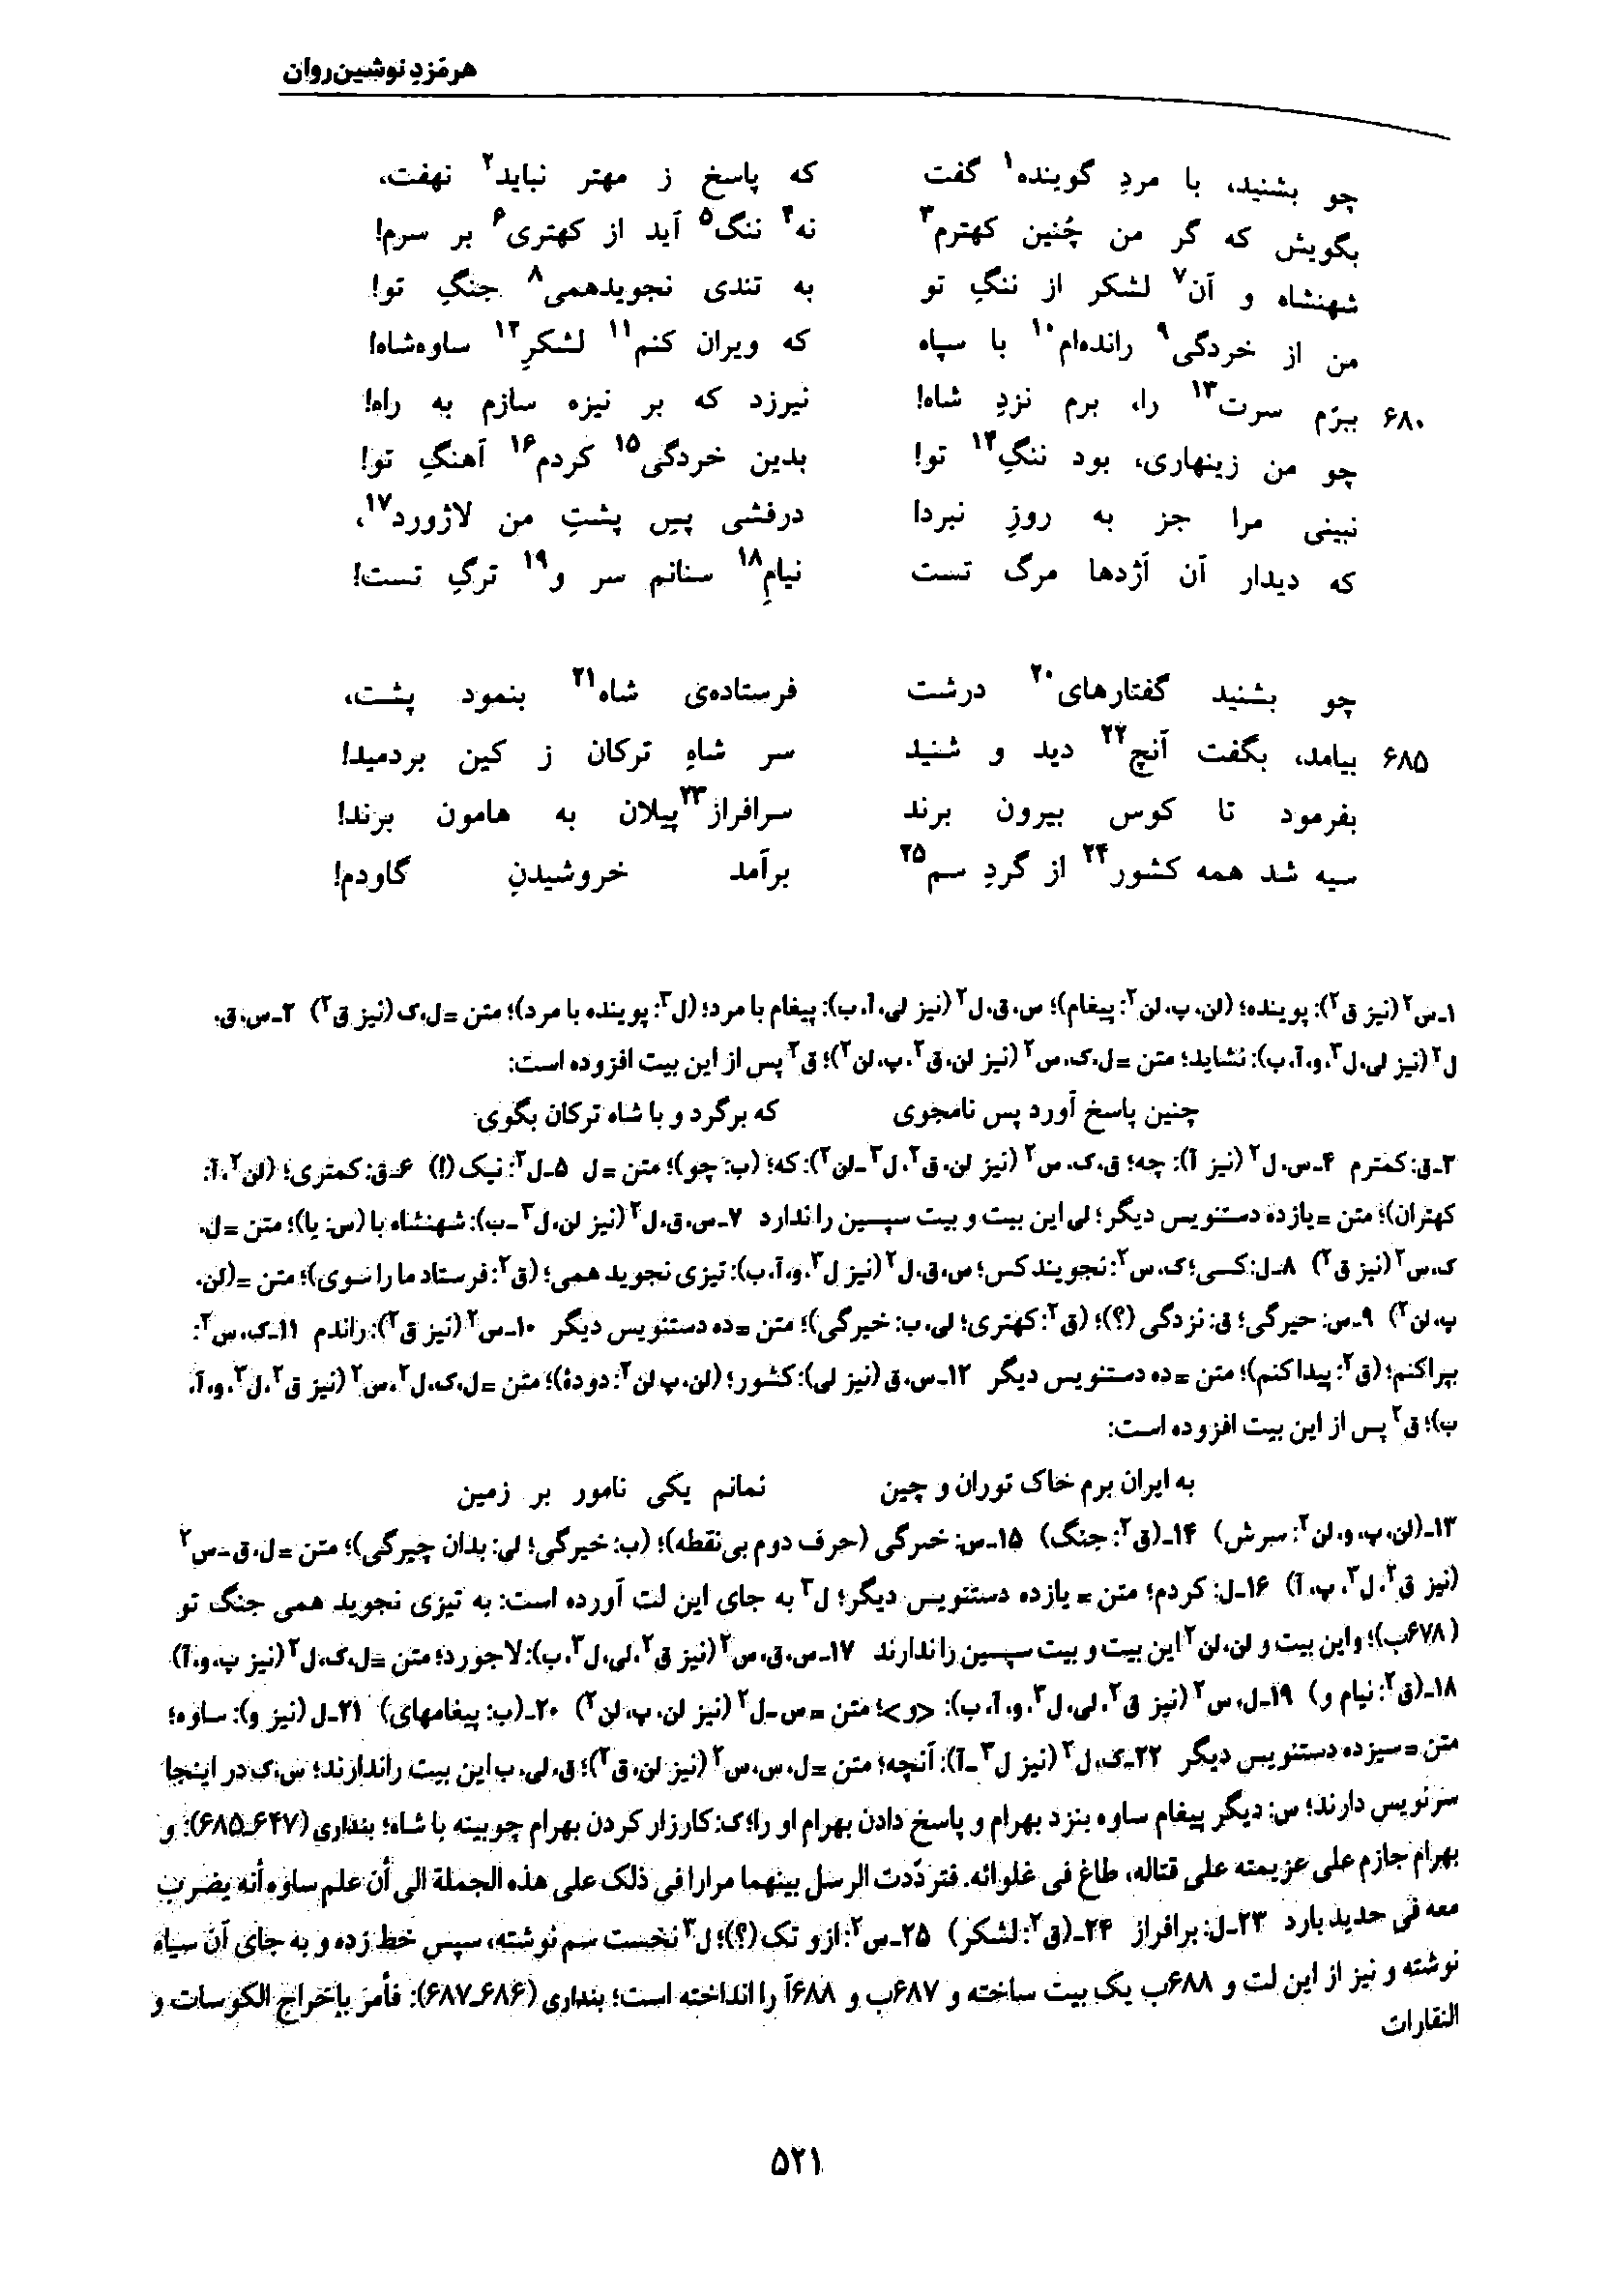 هرمَزدِ نوشین‌روان
چو بشنید، با مردِ گوینده۱ گفت که پاسخ ز مهتر نباید۲ نهفت،
بگویش که گر من چُنین کهترم۳ نه۴ ننگ۵ آید از کهتری۶ بر سرم!
شهنشاه و آن۷ لشکر از ننگِ تو به تندی نجویدهمی۸ جنگِ تو!
من از خردگی۹ رانده‌ام۱۰ با سپاه که ویران کنم۱۱ لشکرِ۱۲ ساوه‌شاه!
۶۸۰ ببرّم سرت۱۳ را، برم نزدِ شاه! نیرزد که بر نیزه سازم به راه!
چو من زینهاری، بود ننگِ۱۴ تو! بدین خردگی۱۵ کردم۱۶ آهنگِ تو!
نبینی مرا جز به روزِ نبرد! درفشی پسِ پشتِ من لاژورد۱۷،
که دیدار آن اژدها مرگ تست نیامِ۱۸ سنانم سر و۱۹ ترگِ تست!
چو بشنید گفتارهای۲۰ درشت فرستاده‌ی شاه۲۱ بنمود پشت،
۶۸۵ بیامد، بگفت آنچ۲۲ دید و شنید سر شاهِ ترکان ز کین بردمید!
بفرمود تا کوس بیرون برند سرافراز۲۳پیلان به هامون برند!
سیه شد همه کشور۲۴ از گَردِ سم۲۵ برآمد خروشیدنِ گاودم!
۱ـ‌س۲ (نیز ق۲): پوینده؛ (لن، پ، لن۲: پیغام)؛ س، ق، ل۲ (نیز لی، آ، ب): پیغام با مرد؛ (ل۳: پوینده با مرد)؛ متن = ل، ک (نیز ق۲) ۲ـ‌س، ق،
ل۲ (نیز لی، ل۳، و، آ، ب): نشاید؛ متن = ل، ک، س۲ (نیز لن، ق۲، پ، لن۲)؛ ق۲ پس از این بیت افزوده است:
چنین پاسخ آورد پس نامجوی که برگرد و با شاه ترکان بگوی
۳ـ‌ق: کمترم ۴ـ‌س، ل۲ (نیز آ): چه؛ ق، ک، س۲ (نیز لن، ق۲، ل۳ـ‌لن۲): که؛ (ب: چو)؛ متن = ل ۵ـ‌ل۲: نیک (!) ۶ـ‌ق: کمتری؛ (لن۲، آ:
کهتران)؛ متن = یازده دستنویس دیگر؛ لی این بیت و بیت سپسین را ندارد ۷ـ‌س، ق، ل۲ (نیز لن، ل۳ـ‌ب): شهنشاه با (س: یا)؛ متن = ل،
ک، س۲ (نیز ق۲) ۸ـ‌ل: کسی؛ ک، س۲: نجویند کس؛ س، ق، ل۲ (نیز ل۳، و، آ، ب): تیزی نجوید همی؛ (ق۲: فرستاد ما را سوی)؛ متن = (لن،
پ، لن۲) ۹ـ‌س: حیرگی؛ ق: نزدگی (؟)؛ (ق۲: کهتری؛ لی، ب: خیرگی)؛ متن = ده دستنویس دیگر ۱۰ـ‌س۲ (نیز ق۲): راندم ۱۱ـ‌ک، س۲:
بپراکنم؛ (ق۲: پیدا کنم)؛ متن = ده دستنویس دیگر ۱۲ـ‌س، ق (نیز لی): کشور؛ (لن، پ لن۲: دودهٔ)؛ متن = ل، ک، ل۲، س۲ (نیز ق۲، ل۳، و، آ،
ب)؛ ق۲ پس از این بیت افزوده است:
به ایران برم خاک توران و چین نمانم یکی نامور بر زمین
۱۳ـ‌(لن، پ، و، لن۲: سرش) ۱۴ـ‌(ق۲: جنگ) ۱۵ـ‌س: خسرگی (حرف دوم بی‌نقطه)؛ (ب: خیرگی؛ لی: بدان چیرگی)؛ متن = ل، ق ـ‌س۲
(نیز ق۲، ل۳، پ، آ) ۱۶ـ‌ل: کردم؛ متن = یازده دستنویس دیگر؛ ل۳ به جای این لت آورده است: به تیزی نجوید همی جنگ تو
(۶۷۸ب)؛ و این بیت و لن، لن۲ این بیت و بیت سپسین را ندارند ۱۷ـ‌س، ق، س۲ (نیز ق۲، لی، ل۳، ب): لاجورد؛ متن = ل، ک، ل۲ (نیز پ، و، آ)
۱۸ـ‌(ق۲: نیام و) ۱۹ـ‌ل، س۲ (نیز ق۲، لی، ل۳، و، آ، ب): <و>؛ متن = س ـ‌ل۲ (نیز لن، پ، لن۲) ۲۰ـ‌(ب: پیغامهای) ۲۱ـ‌ل (نیز و): ساوه؛
متن = سیزده دستنویس دیگر ۲۲ـ‌ک، ل۲ (نیز ل۳ـ‌آ): آنچه؛ متن = ل، س، س۲ (نیز لن، ق۲)؛ ق، لی، ب این بیت را ندارند؛ س، ک در اینجا
سرنویس دارند؛ س: دیگر پیغام ساوه بنزد بهرام و پاسخ دادن بهرام او را؛ ک: کارزار کردن بهرام چوبینه با شاه؛ بنداری (۶۴۷ـ‌۶۸۵): و
بهرام جازم علی عزیمته علی قتاله، طاغ فی غلوائه. فتردّدت الرسل بینهما مرارا فی ذلک علی هذه الجملة الی أن علم ساوه أنه یضرب
معه فی حدید بارد ۲۳ـ‌ل: برافراز ۲۴ـ‌(ق۲: لشکر) ۲۵ـ‌س۲: ازو تک (؟)؛ ل۳ نخست سم نوشته، سپس خط زده و به جای آن سیاه
نوشته و نیز از این لت و ۶۸۸ب یک بیت ساخته و ۶۸۷ب و ۶۸۸آ را انداخته است؛ بنداری (۶۸۶ـ‌۶۸۷): فأمر بإخراج الکوسات و
النقارات
۵۲۱